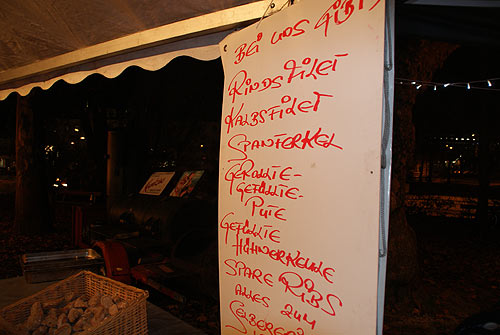 BEI UNS GIBTS
RINDSFILET
KALBSFILET
SPANFERKEL
GEROLLTE-
GEFÜLLTE-
PUTE
GEFÜLLTE
HÜHNERKEULE
SPARE RIBS
ALLES ZUM